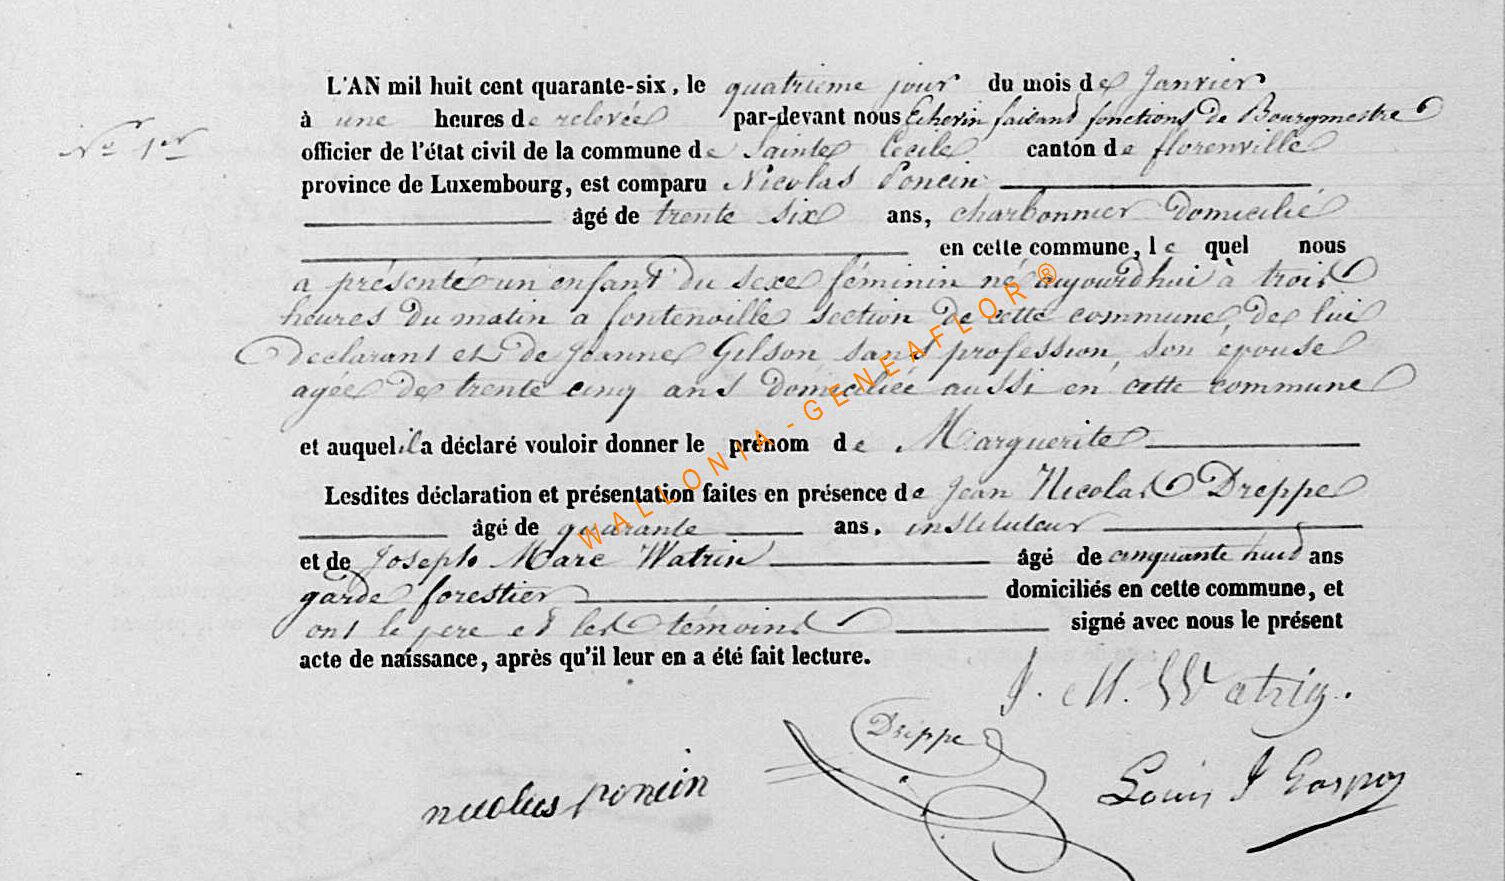 L'AN mil huit cent quarante-six, le quatrième jour du mois de Janvier
à une heures de relevée par-devant nous Echevin faisant fonctions de Bourgmestre
N° 1er
officier de l'état civil de la commune de Sainte Cecile canton de florenville
province de Luxembourg, est comparu Nicolas Poncin
âgé de trente six ans, charbonnier domicilié
en cette commune, le quel nous
a présenté un enfant du sexe féminin né aujourd'hui à trois
heures du matin a fontenoille section de cette commune, de lui
declarant et de Jeanne Gilson sans profession, son épouse
agée de trente cinq ans domiciliée aussi en cette commune
et auquel il a déclaré vouloir donner le prénom de Marguerite
Lesdites déclaration et présentation faites en présence de Jean Nicolas Dreppe
âgé de quarante ans, instituteur
et de Joseph Marc Watrin âgé de cinquante huit ans
garde forestier domiciliés en cette commune, et
ont le pere et les témoins signé avec nous le présent
acte de naissance, après qu'il leur en a été fait lecture.
J. M. Watrin.
Dreppe
nicolas poncin
Louis J Gaspar
WALLONIA - GENEAFLOR ®